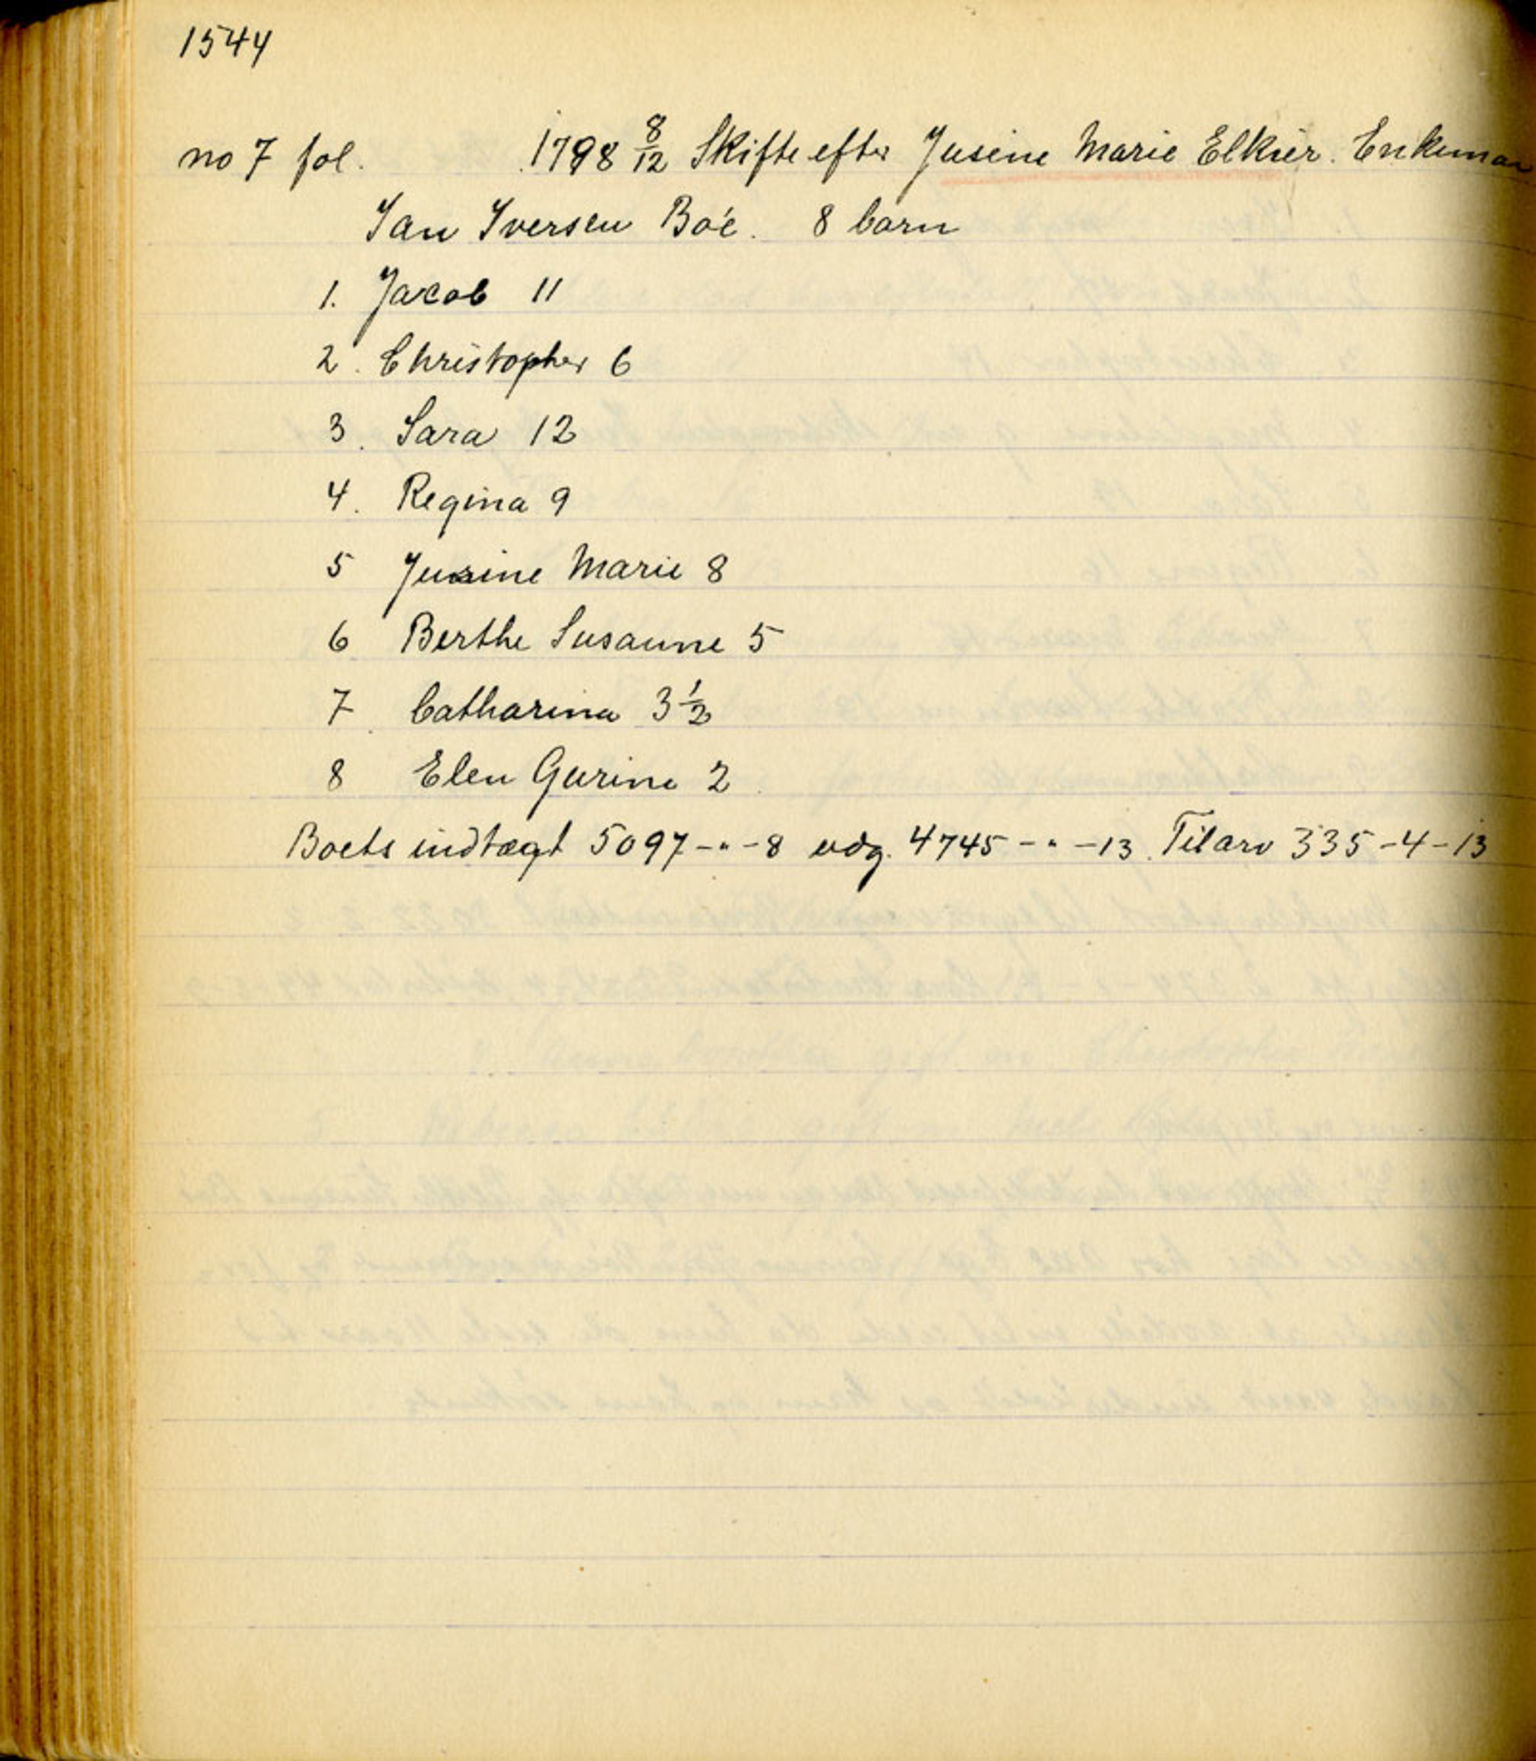 1544
no 7 fol. 1798 8/12 Skifte efter Jusine Marie Elkier. Enkeman
Jan Iversen Boe. 8 barn
1. Jacob 11
2. Christopher 6
3. Sara 12
4. Regina 9
5 Jusine Marie 8
6 Berthe Susanne 5
7. Catharina 3 1/2
8 Elen Gurine 2
Boets indtægt 5097-"-8 udg. 4745-"-13. Til arv 335-4-13